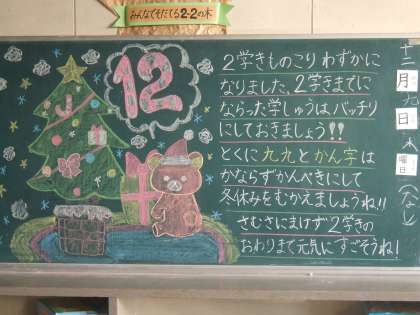 みんなでそだてる2-2の木
12
2学きものこりわずかに
なりました。2学きまでに
ならった学しゅうは、バッチリ
にしておきましょう!!
とくに九九とかん字は
かならずかんぺきにして
冬休みをむかえましょうね!!
さむさにまけず2学きの
おわりまで元気にすごそうね!
十二月九日(木曜日)
(なし)